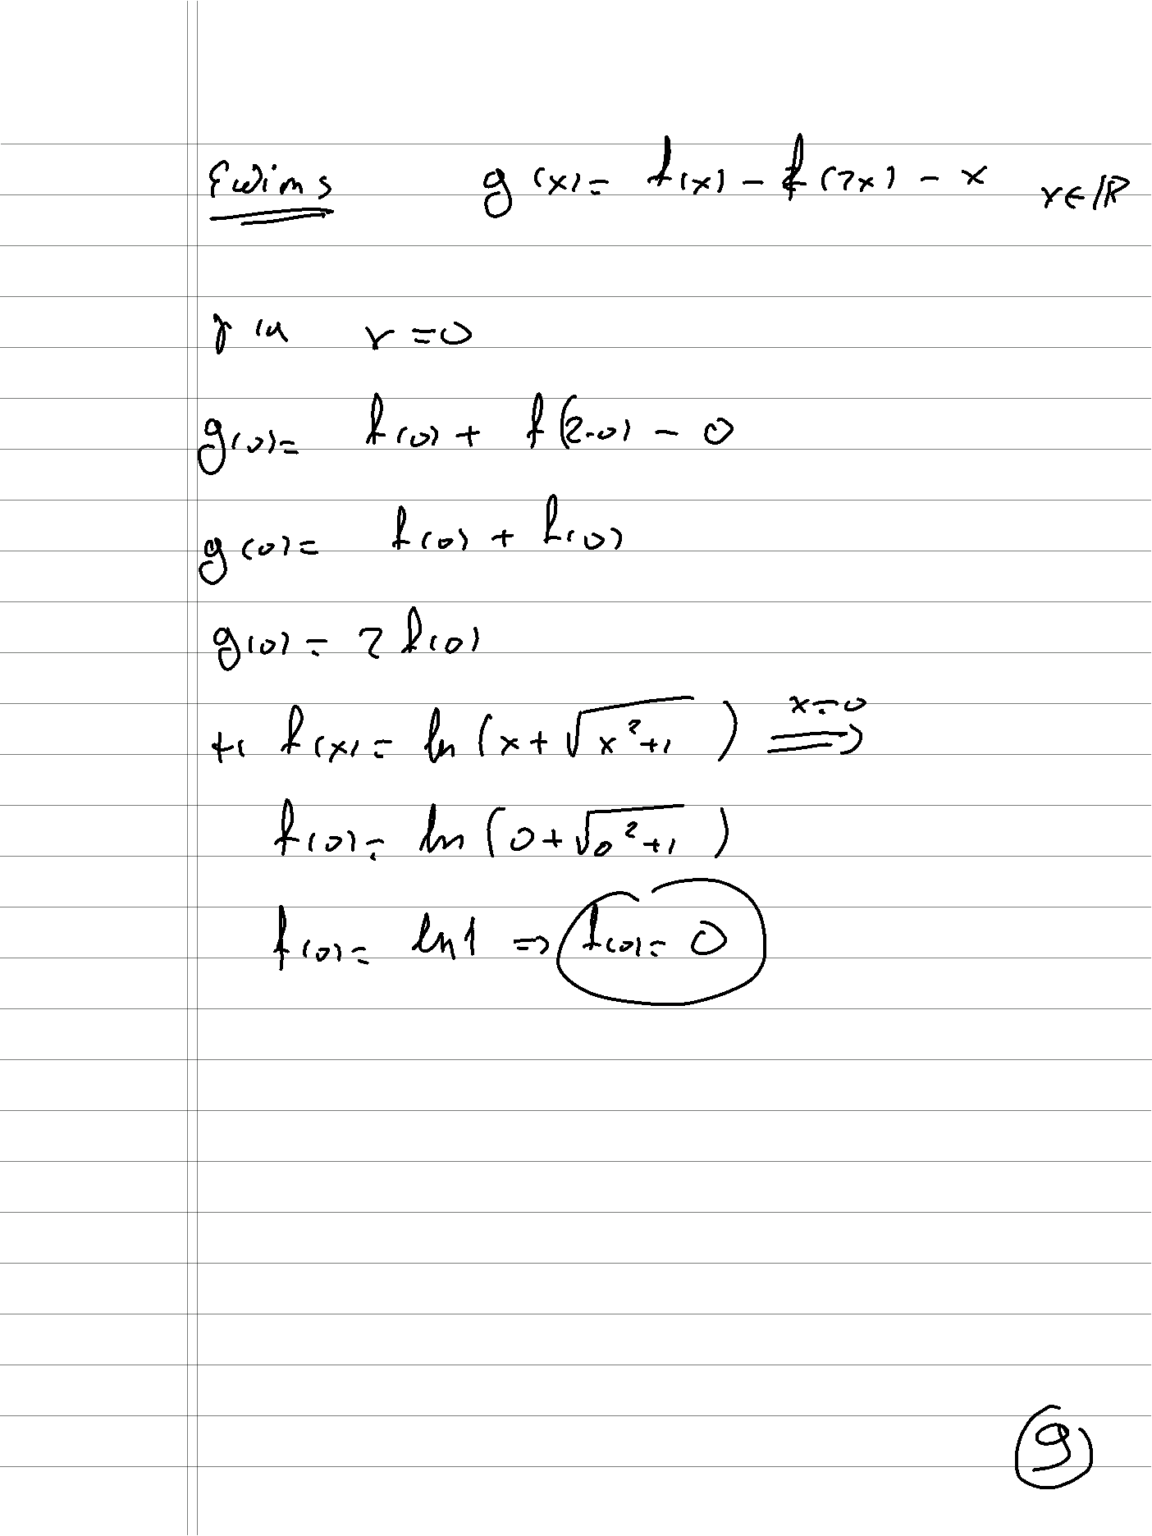 Επίσης g(x) = f(x) - f(2x) - x x∈ℝ
για x = 0
g(0) = f(0) + f(2·0) - 0
g(0) = f(0) + f(0)
g(0) = 2f(0)
f(x) = ln(x + √(x²+1)) x=0 ⟹
f(0) = ln(0 + √(0²+1))
f(0) = ln1 ⇒ f(0) = 0
9